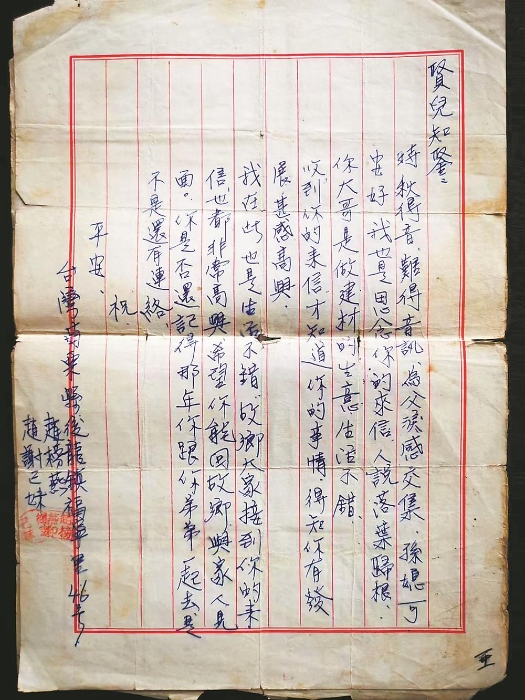 賢兒知鑒：
時秋得音，難得音訊為父淚感交集，孫媳可
安好我也是思念你的來信，人說落葉歸根，
你大哥是做建材的生意生活不錯，
收到你的來信才知道你的事情，得知你有發
展甚感高興，
我在此也是生活不錯，故鄉大家接到你的來
信也都非常高興希望你能回故鄉與家人見
面。你是否還記得那年你跟你弟弟一起去
不是還有連絡，
祝
平安、
台灣苗栗縣後龍鎮福寧里46号，
趙榜
趙謝己妹